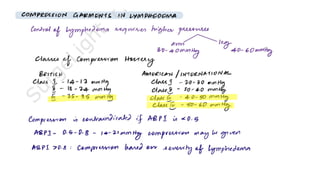 COMPRESSION GARMENTS IN LYMPHEDEMA
Control of lymphedema requires higher pressures
arm leg
30-40mmHg 40-60mmHg
Classes of Compression Hosiery
BRITISH AMERICAN / INTERNATIONAL
Class I - 14-17 mmHg Class I - 20-30 mmHg
II - 18-24 mmHg Class II - 30-40 mmHg
III - 25-35 mmHg Class III - 40-50 mmHg
Class IV - 50-60 mmHg
Compression is contraindicated if ABPI is <0.5
ABPI - 0.5-0.8 - 14-21mmHg compression may be given
ABPI >0.8 : Compression based on severity of lymphedema